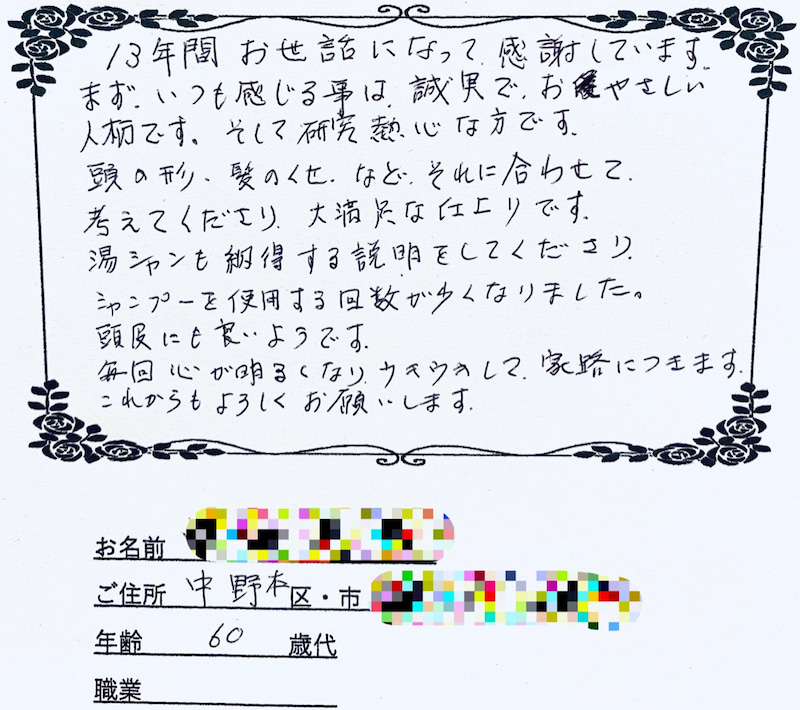 13年間 お世話になって、感謝しています。
まず、いつも感じる事は、誠実で、おやさしい
人柄です。そして研究熱心な方です。
頭の形、髪のくせ、など、それに合わせて、
考えてくださり、大満足な仕上りです。
湯シャンも納得する説明をしてくださり、
シャンプーを使用する回数が少くなりました。
頭皮にも良いようです。
毎回心が明るくなり、ウキウキして、家路につきます。
これからもよろしくお願いします。
お名前
ご住所 中野 区・市
年齢 60 歳代
職業